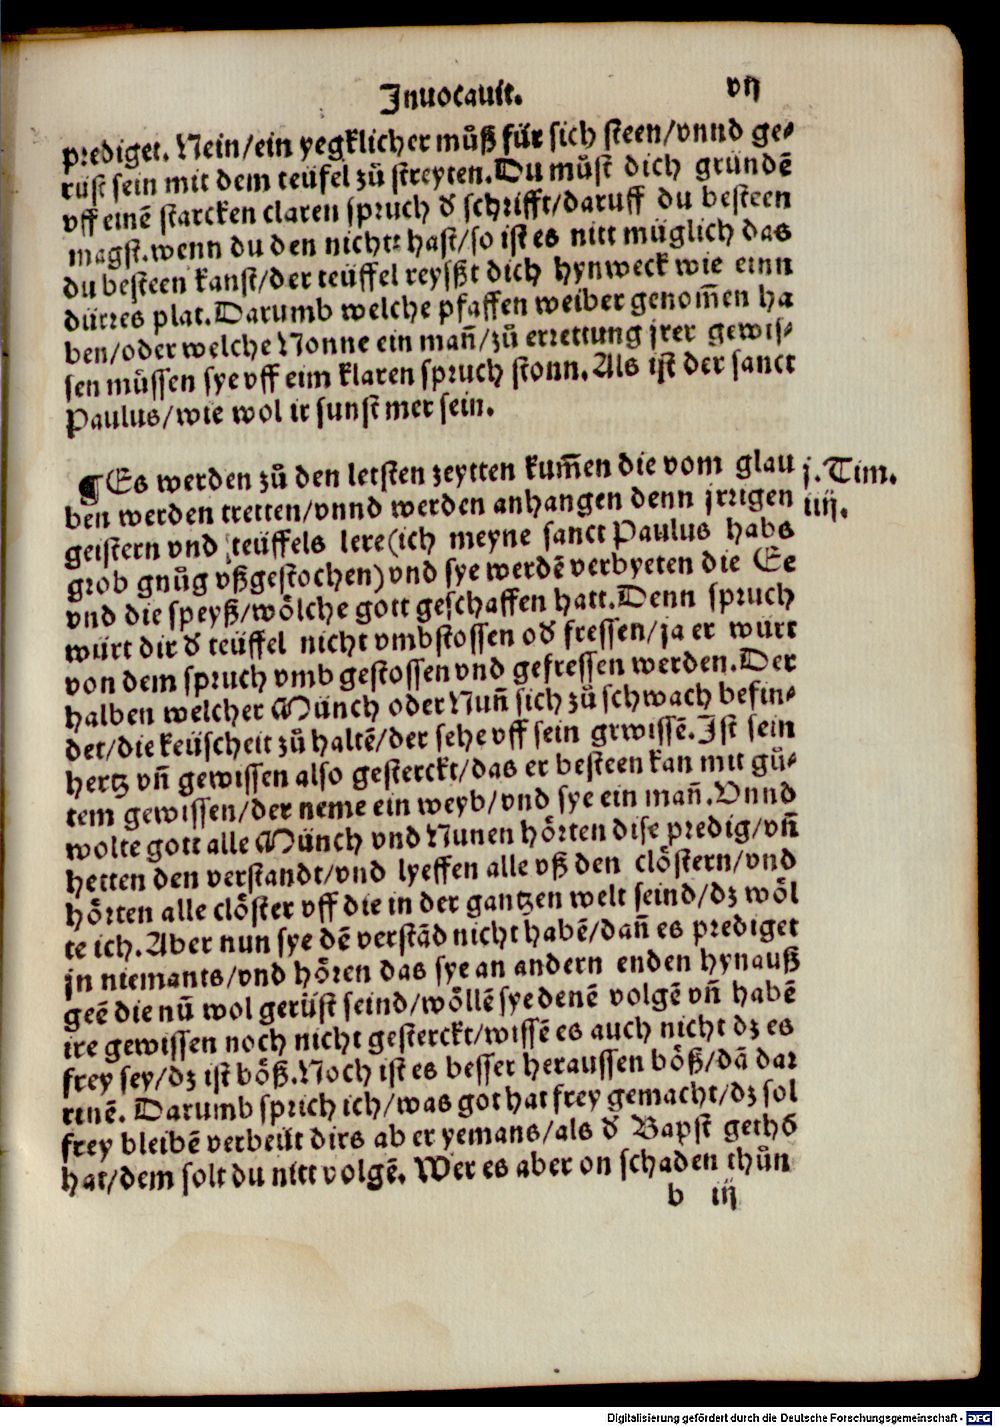 Inuocauit. vij
prediget. Nein/ein yegklicher můß für sich steen/vnnd ge⸗
rüst sein mit dem teüfel zů streyten. Du můst dich gründẽ
vff einẽ starcken claren spruch d̕ schrifft/daruff du besteen
magst. wenn du den nicht hast/so ist es nitt müglich das
du besteen kanst/der teüffel reyßt dich hynweck wie einn
dürres plat. Darumb welche pfaffen weiber genom̃en ha
ben/oder welche Nonne ein mañ/zů errettung jrer gewis⸗
sen müssen sye vff eim klaren spruch stonn. Als ist der sanct
Paulus/wie wol ir sunst mer sein.
¶Es werden zů den letsten zeytten kum̃en die vom glau
j. Tim.
ben werden tretten/vnnd werden anhangen denn jrrigen
iiij.
geistern vnd teüffels lere(ich meyne sanct Paulus habs
grob gnůg vßgestochen)vnd sye werdẽ verbyeten die Ee
vnd die speyß/wölche gott geschaffen hatt. Denn spruch
würt dir d̕ teüffel nicht vmbstossen od̕ fressen/ja er würt
von dem spruch vmb gestossen vnd gefressen werden. Der
halben welcher Münch oder Nuñ sich zů schwach befin⸗
det/die keüscheit zů haltẽ/der sehe vff sein grwissẽ. Ist sein
hertz vñ gewissen also gesterckt/das er besteen kan mit gů⸗
tem gewissen/der neme ein weyb/vnd sye ein mañ. Vnnd
wolte gott alle Münch vnd Nunen hörten dise predig/vñ
hetten den verstandt/vnd lyeffen alle vß den clöstern/vnd
hörten alle clöster vff die in der gantzen welt seind/dz wöl
te ich. Aber nun sye dẽ verstãd nicht habẽ/dañ es prediget
jn niemants/vnd hören das sye an andern enden hynauß
geẽ die nũ wol gerüst seind/wöllẽ sye denẽ volgẽ vñ habẽ
ire gewissen noch nicht gesterckt/wissẽ es auch nicht dz es
frey sey/dz ist böß. Noch ist es besser heraussen böß/dã dar
rinẽ. Darumb sprich ich/was got hat frey gemacht/dz sol
frey bleibẽ verbeüt dirs ab er yemans/als d̕ Bapst gethõ
hat/dem solt du nitt volgẽ. Wer es aber on schaden thůn
b iij
Digitalisierung gefördert durch die Deutsche Forschungsgemeinschaft - DFG